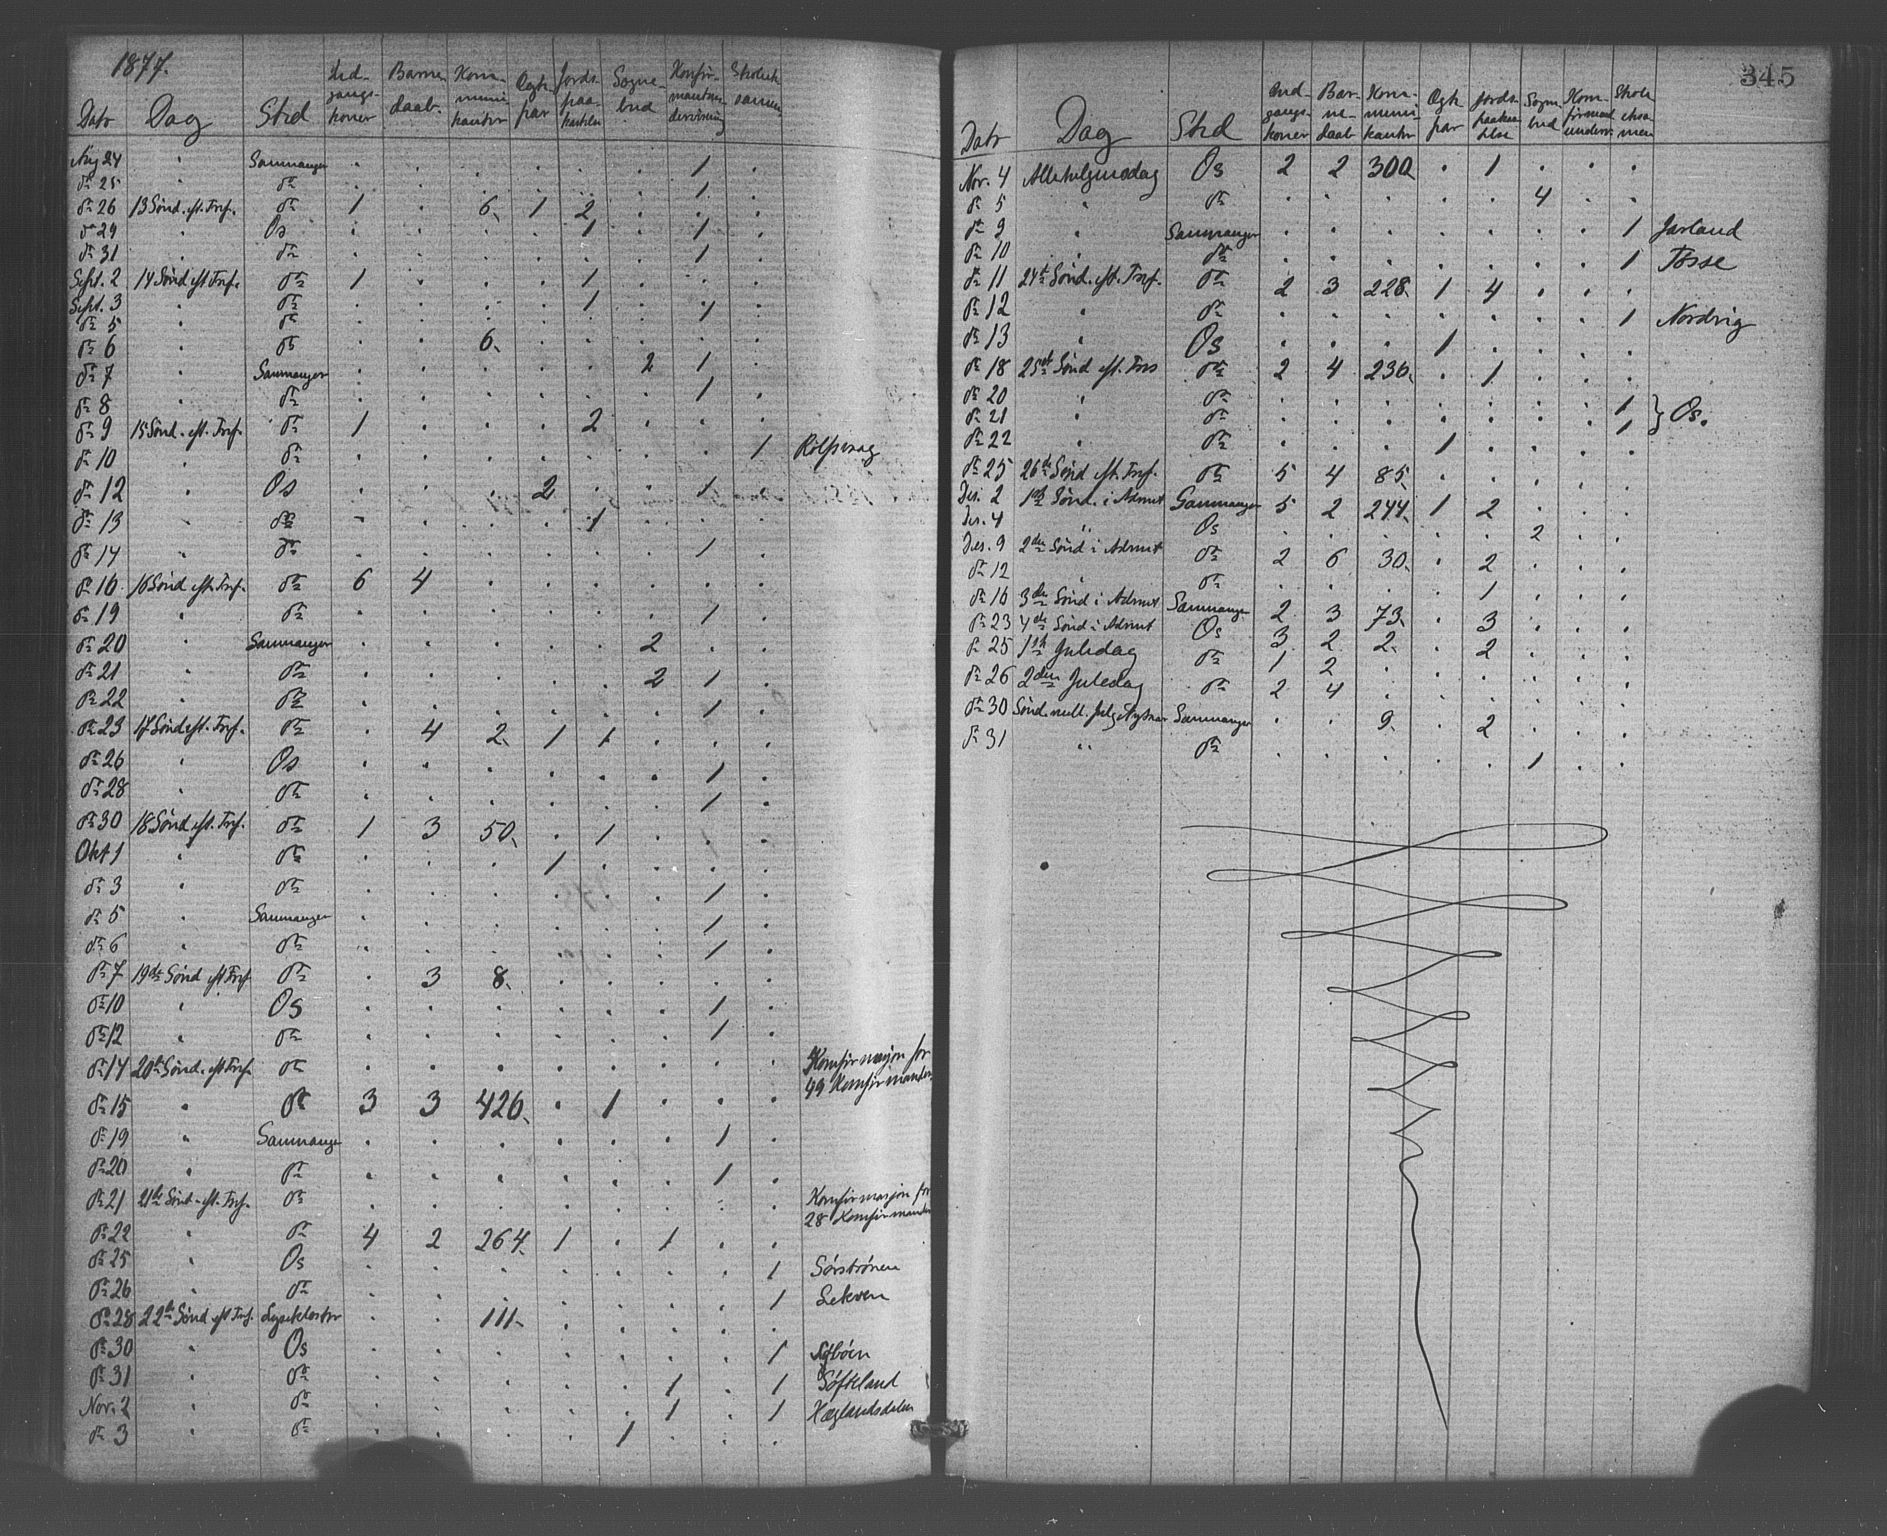 1877.
Dato Dag Sted Ind-gangs-koner Barne-daab. Kom-muni-kanter Ægte par Jords-paa-kastelse Sogne-bud Konfir-mantun-dervisning Skoleek-samen
Aug 24 " Sammanger . . . . . . 1 .
do 25 " do . . . . . . 1 .
do 26 13 Sönd. eft. Tref. do 1 . 6. 1 2 . . .
do 29 " Os . . . . 1 . 1 .
do 31 " do . . . . . . 1 .
Sept. 2 14 Sönd eft Tref. do 1 . . . 1 . . .
Sept. 3 " do . . . . 1 . . .
do 5 " do . . . . . . 1 .
do 6 " do . . 6. . . . . .
do 7 " Sammanger . . . . . 2 1 .
do 8 " do . . . . . . 1 .
do 9 15 Sönd. eft. Tref. do 1 . . . 2 . . .
do 10 " do . . . . . . . 1 Rolfsvaag
do 12 " Os . . . 2 . . 1 .
do 13 " do . . . . 1 . . .
do 14 " do . . . . . . 1 .
do 16 16 Sönd eft. Tref. do 6 4 . . . . . .
do 19 " do . . . . . . 1 .
do 20 " Sammanger . . . . . 2 . .
do 21 " do . . . . . 2 1 .
do 22 " do . . . . . . 1 .
do 23 17 Sönd eft. Tref. do . 4 2. 1 1 . . .
do 26 " Os . . . . . . 1 .
do 28 " do . . . . . . 1 .
do 30 18 Sönd eft. Tref. do 1 3 50. . 1 . . .
Okt 1 " do . . . 1 . . . .
do 3 " do . . . . . . 1 .
do 5 " Sammanger . . . . . . 1 .
do 6 " do . . . . . . 1 .
do 7 19de Sönd eft Tref do . 3 8. . . . . .
do 10 " Os . . . . . . 1 .
do 12 " do . . . . . . 1 .
do 14 20de Sönd. eft Tref. do . . . . . . . . Konfirmasjon for
49 Konfirmander
do 15 " do 3 3 426. . 1 . . .
do 19 " Sammanger . . . . . . 1 .
do 20 " do . . . . . . 1 .
do 21 21de Sönd. eft. Tref. do . . . . . . . . Konfirmasjon for
28 Konfirmander
do 22 " do 4 2 264. 1 . 1 . .
do 25 " Os . . . . . . . 1 Sörströnen
do 26 " do . . . . . . . 1 Lekven
do 28 22de Sönd eft Tref. Lysekloster . . 111. . . . . .
do 30 " Os . . . . . . . 1
do 31 " do . . . . . 1 . 1 Söfteland
Nov. 2 " do . . . . . 1 . 1 Hæglandsdalen
do 3 " do . . . . 1 . . .
345
Dato Dag Sted Ind-gangs-koner Bar-ne-daab Kom-muni-kanter Ægte par Jords-paakas-telse Sogne-bud Kon-firmant-underv. Skole-eksa-men
Nov. 4 Allehelgensdag Os 2 2 300. . 1 . . .
do 5 " do . . . . . 4 . .
do 9 " Sammanger . . . . . . . 1 Jarland
do 10 " do . . . . . . . 1 Tösse
do 11 24de Sönd. eft. Tref. do 2 3 228. 1 4 . . .
do 12 " do . . . . . . . 1 Nordvig
do 13 " Os . . . 1 . . . .
do 18 25de Sönd eft. Tref do 2 4 236. . 1 . . .
do 20 " do . . . . . . . 1 } Os.
do 21 " do . . . . . . . 1
do 22 " do . . . 1 . . . .
do 25 26de Sönd eft. Tref. do 5 4 85. . . . . .
Des. 2 1ste Sönd. i Advent Sammanger 5 2 244. 1 2 . . .
Des. 4 " Os . . . . . 2 . .
Des. 9 2den Sönd i Advent do 2 6 30. . 2 . . .
do 12 " do . . . . 1 . . .
do 16 3de Sönd i Advent Sammanger 2 3 73. . 3 . . .
do 23 4de Sönd i Advent Os 3 2 2. . 2 . . .
do 25 1ste Juledag do 1 2 . . . . . .
do 26 2den Juledag do 2 4 . . . . . .
do 30 Sönd. mell. Jul og Nytaar Sammanger . . 9. . 2 . . .
do 31 " do . . . . . 1 . .